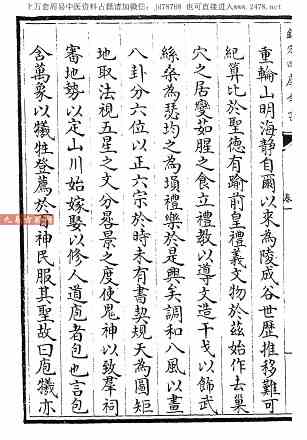 上万套周易中医资料古籍请加微信：jd78768 也可直接进入www.2478.net
重輪山明海静自爾以来為陵成谷世歴推移難可
紀算比於聖徳有踰前皇禮義文物於兹始作去巢
穴之居變茹腥之食立禮教以導文造干戈以飾武
絲桑為瑟均之為塤禮樂於是興矣調和八風以畫
八卦分六位以正六宗於時未有書契規天為圖矩
地取法視五星之文分晷景之度使鬼神以致羣祠
審地勢以定山川始嫁娶以修人道庖者包也言包
含萬象以犧牲登薦於百神民服其聖故曰庖犧亦